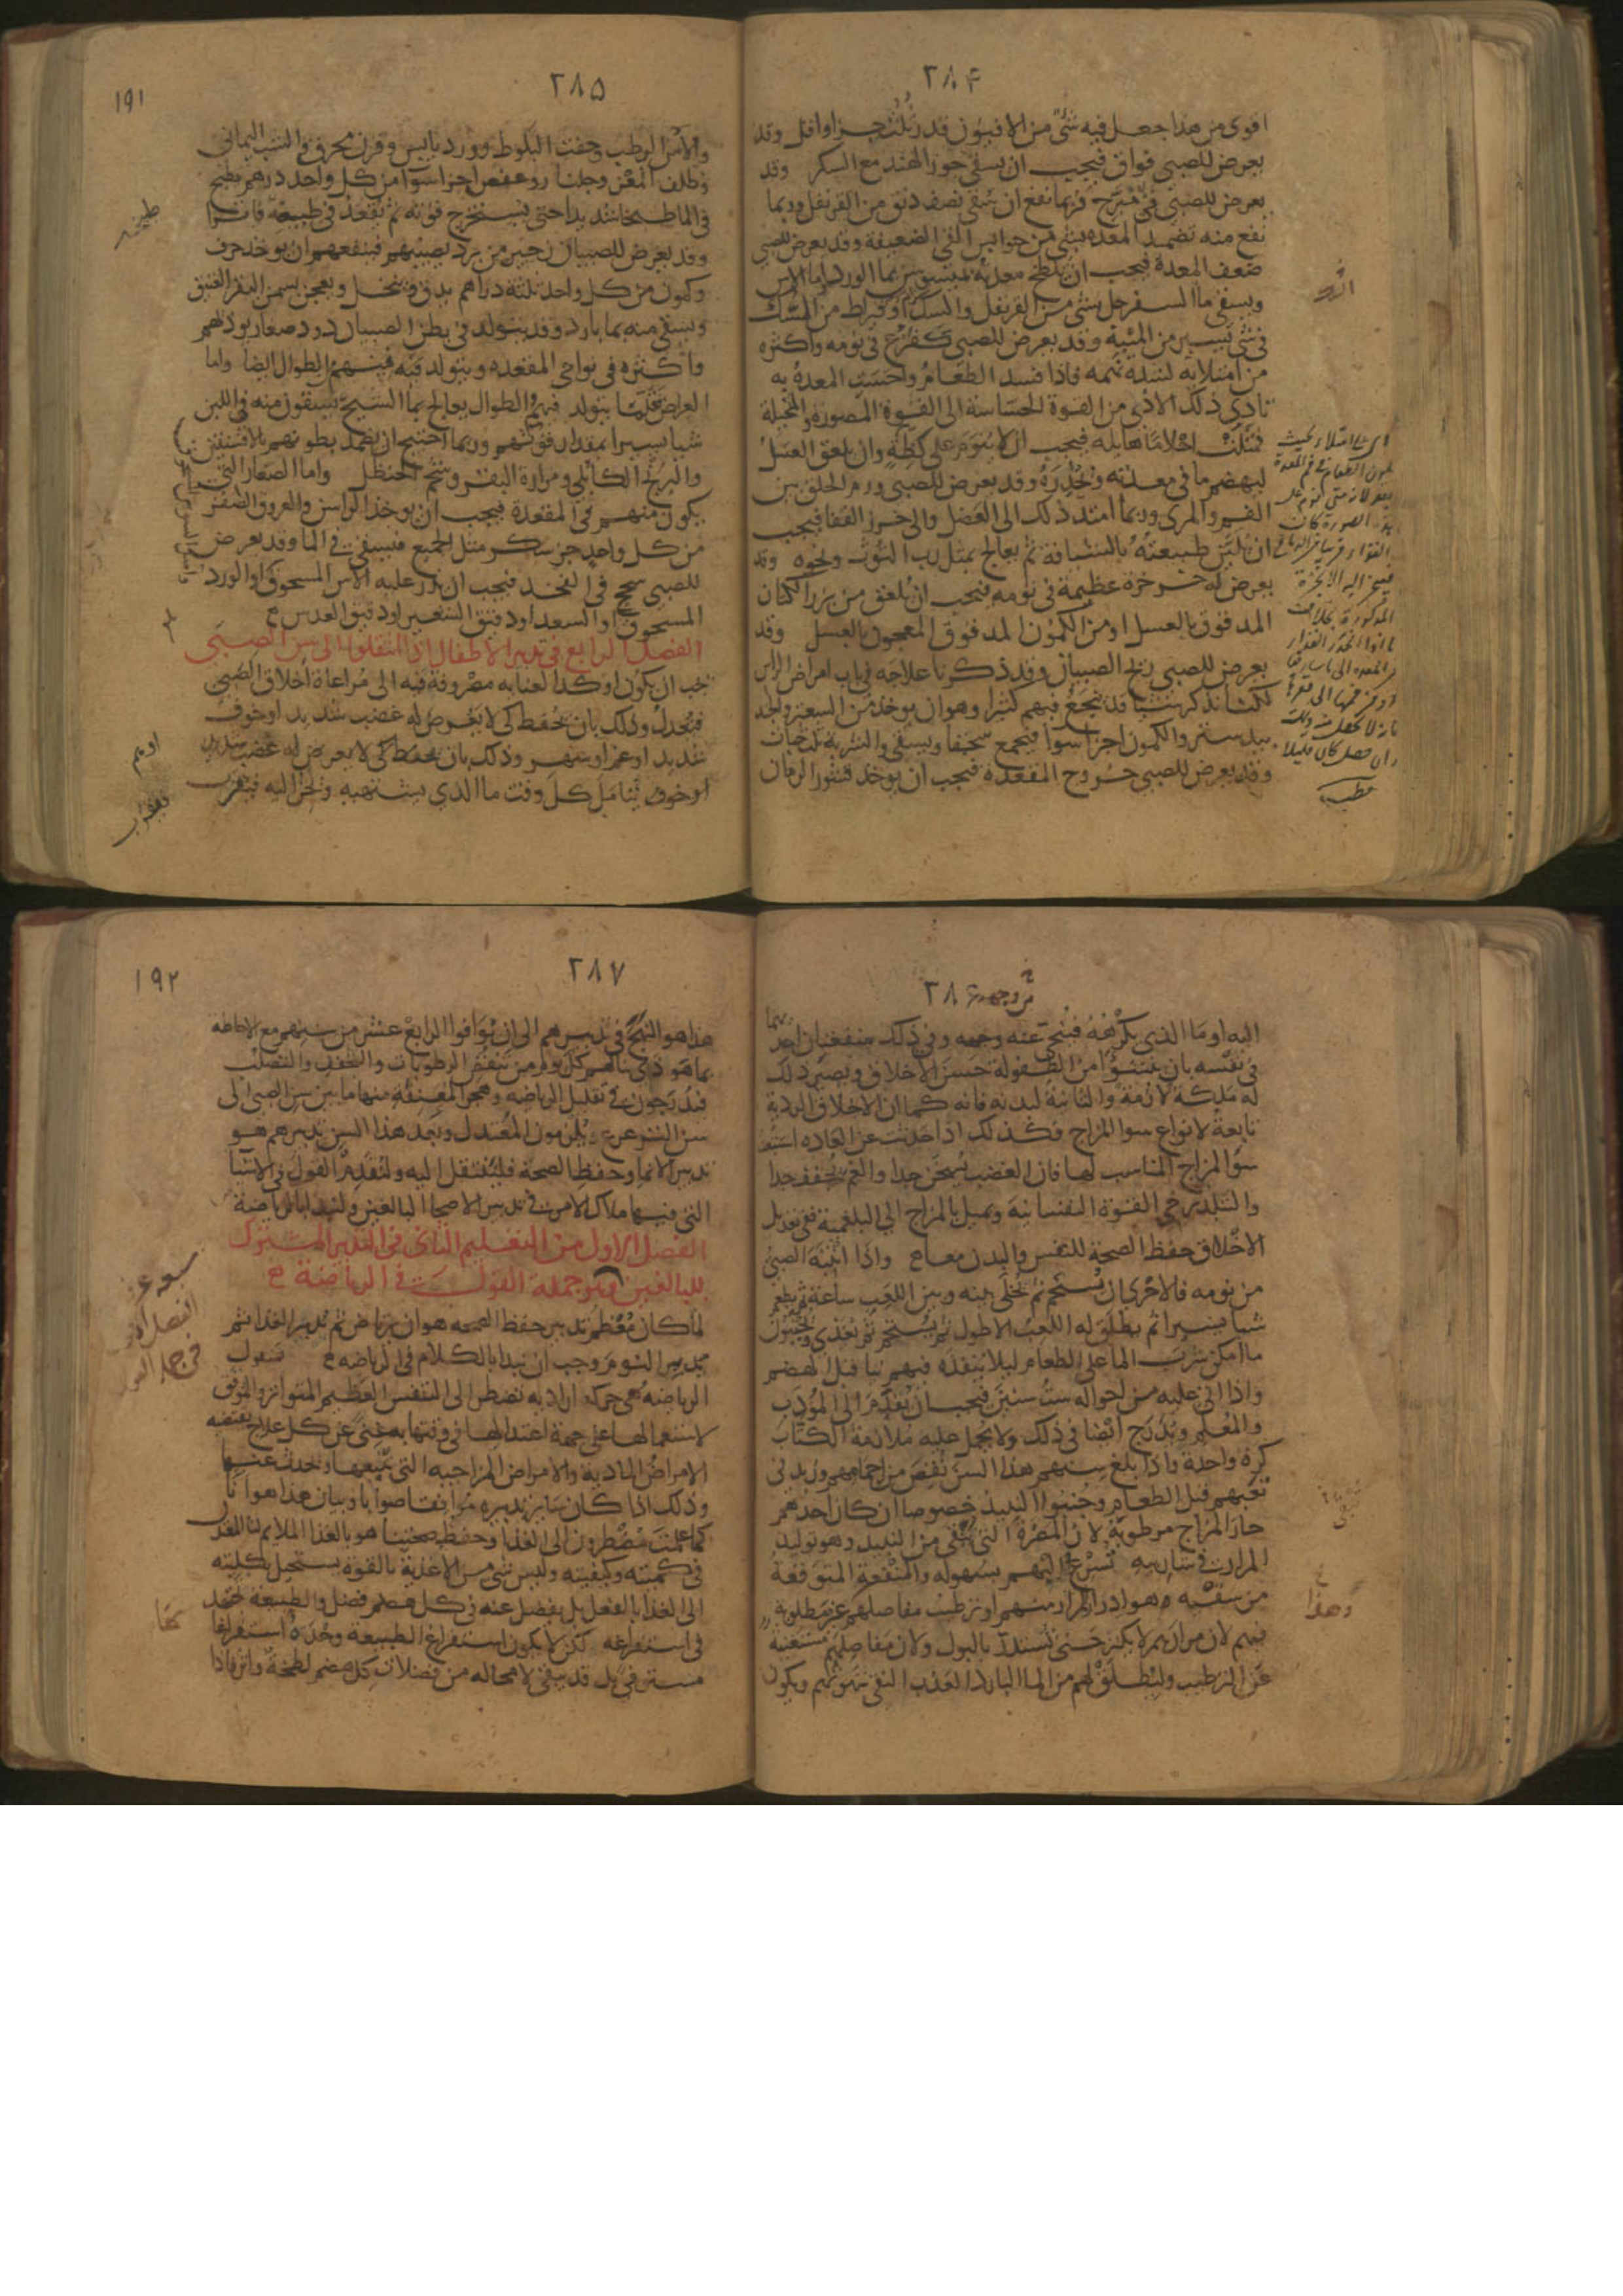 ٢٨۴
اقوى من هذا جعل فيه شئ من الافيون قدر ثلث جزا واقل وقد
يعرض للصبي فواق فيجب ان يسقي جوز الهند مع السكر وقد
يعرض للصبي قئ مبرح فربما نفع ان يسقى نصف دنق من القرنفل وربما
نفع منه تضميد المعده بشئ من حوابس القئ الضعيفة وقد يعرض للصبي
ضعف المعدة فيجب ان تلطخ معدته بميسوسن بما الورد او ما الاس
ويسقى ما السفرجل بشئ من القرنفل والسك او قيراط من السك
في شئ يسير من الميبه وقد يعرض للصبي كفزع في نومه واكثره
من امتلايه لشدة نهمه فاذا فسد الطعام واحست المعدة به
تادى ذلك الاذى من القوة الحساسة الى القوة المصورة والمخيلة
فمثلت احلاما هايلة فيجب ان لا ينوم على كظة وان يلعق العسل
ليهضم ما في معدته ويحدره وقد يعرض للصبي ورم الحلق بين
الفم والمرى وربما امتد ذلك الى العضل والى خرز القفا فيجب
ان تلين طبيعته بالشيافة ثم يعالج بمثل رب التوت ونحوه وقد
يعرض له خرخرة عظيمة في نومه فيجب ان يلعق من بزر الكتان
المدقوق بالعسل او من الكمون المدقوق المعجون بالعسل وقد
يعرض للصبي ريح الصبيان وقد ذكرنا علاجه في باب امراض الراس
لكنا نذكر شيا قد ينجع فيهم كثيرا وهو ان يوخذ من السعتر والجند
بيدستر والكمون اجزا سوا فيجمع سحقا ويسقى والشربة ثلث حبات
وقد يعرض للصبي خروج المقعده فيجب ان يوخذ قشور الرمان
٢٨۵
١٩١
والاس الرطب وجفت البلوط وورد يابس وقرن محرق والشب اليماني
وظلف المعز وجلنار وعفص اجزا سوا من كل واحد درهم يطبخ
في الما طبخا شديدا حتى يستخرج قوته ثم يقعد في طبيخه فاترا
وقد يعرض للصبيان زحير من برد يصيبهم فينفعهم ان يوخذ حرف
وكمون من كل واحد ثلثة دراهم يدق وينخل ويعجن بسمن البقر العتيق
ويسقى منه بما بارد وقد يتولد في بطن الصبيان دود صغار يوذيهم
واكثره في نواحي المقعده ويتولد فيه منهم الطوال ايضا واما
العراض فقلما يتولد فيهم والطوال يعالج بما الشيح يسقون منه في اللبن
شيا يسيرا بمقدار قوتهم وربما احتيج ان يضمد بطونهم بالافسنتين
والبرنج الكابلي ومرارة البقر وشحم الحنظل واما الصغار التي
يكون منهم في المقعدة فيجب ان يوخذ الراسن والعروق الصفر
من كل واحد جز سكر مثل الجميع فيسقى في الما وقد يعرض
للصبي سحج في الفخد فيجب ان يذر عليه الاس المسحوق او الورد
المسحوق او السعد او دقيق الشعير او دقيق العدس
الفصل الرابع في تدبير الاطفال اذا انتقلوا الى سن الصبي
يجب ان يكون اوكد العنايه مصروفة فيه الى مراعاة اخلاق الصبي
فيعدل وذلك بان يحفظ كي لا يعرض له غضب شديد او خوف
شديد او غم او سهر وذلك بان يحفظ كي لا يعرض له غضب شديد
او خوف يتامل كل وقت ما الذي يشتهيه ويحن اليه فيقرب
٢٨۶
اليه او ما الذي يكرهه فينحى عنه وجهه وفي ذلك منفعتان احديهما
في نفسه بان ينشؤا من الطفولة حسن الاخلاق ويصير ذلك
له ملكة لازمة والثانية لبدنه فانه كما ان الاخلاق الردية
تابعة لانواع سوا المزاج فكذلك اذا حدثت عن العاده استتبعت
سوا المزاج المناسب لها فان الغضب يسخن جدا والغم يجفف جدا
والتبلد يرخي القوة النفسانية ويميل بالمزاج الى البلغمية ففي تعديل
الاخلاق حفظ الصحة للنفس والبدن معا واذا انتبه الصبي
من نومه فالاحرى ان يستحم ثم يخلى بينه وبين اللعب ساعة ثم يطعم
شيا يسيرا ثم يطلق له اللعب الاطول ثم يستحم ثم يغذى ويجنبون
ما امكن شرب الما على الطعام ليلا ينفذه فيهم نيا قبل الهضم
واذا اتى عليه من احواله ست سنين فيجب ان يقدم الى المؤدب
والمعلم ويدرج ايضا في ذلك ولا يحمل عليه ملازمة الكتاب
كرة واحدة واذا بلغ سنهم هذا السن نقص من اجمامهم وزيد في
تعبهم قبل الطعام وجنبوا النبيذ خصوصا ان كان احدهم
حار المزاج مرطوبه لان المضرة التي تتقى من النبيذ وهو توليد
المرار في شاربيه تسرع اليهم بسهوله والمنفعة المتوقعة
من سقيه هو ادرار المرار منهم او ترطيب مفاصلهم غير مطلوبة
فيهم لان مرارهم لا يكثر حتى تستدر بالبول ولان مفاصلهم مستغنيه
عن الترطيب وليطلق لهم من الما البارد العذب النقي شهوتهم ويكون
٢٨٧
١٩٢
هذا هو النهج في تدبيرهم الى ان يوافوا الرابع عشر من سنهم مع الاحاطه
بما هو ذي بهم كل يوم من تنقض الرطوبات والتجفف والتصلب
فيدرجون في تقليل الرياضه وهجر المعنفة منها ما بين سن الصبي الى
سن الترعرع ويلزمون المعتدل وبعد هذا السن تدبيرهم هو
تدبير الانما وحفظ الصحة فلننتقل اليه ولنقدم القول في الاشيا
التي فيها ملاك الامر في تدبير الاصحا البالغين ولنبدا بالرياضة
الفصل الاول من التعليم الثاني في التدبير المشترك
للبالغين وهو جملة القول في الرياضة
لما كان معظم تدبير حفظ الصحه هو ان يرتاض ثم تدبير الغذا ثم
تدبير النوم وجب ان نبدا بالكلام في الرياضه فنقول
الرياضه هي حركة ارادية تضطر الى التنفس العظيم المتواتر والموفق
لاستعمالها على جهة اعتدالها في وقتها به غنى عن كل علاج يقتضيه
الامراض المادية والامراض المزاجيه التي تتبعها وتحدث عنها
وذلك اذا كان ساير تدبيره موافقا صوابا وبيان هذا هو انا
كما علمت مضطرون الى الغذا وحفظ صحتنا هو بالغذا الملايم لنا المعتدل
في كميته وكيفيته وليس شئ من الاغذية بالقوه يستحيل بكليته
الى الغذا بالفعل بل يفضل عنه في كل هضم فضل والطبيعه تجتهد
في استفراغه لكن لا يكون استفراغ الطبيعة وحده استفراغا
مستوفي بل قد يبقى لا محاله من فضلات كل هضم لطخة واثر فاذا